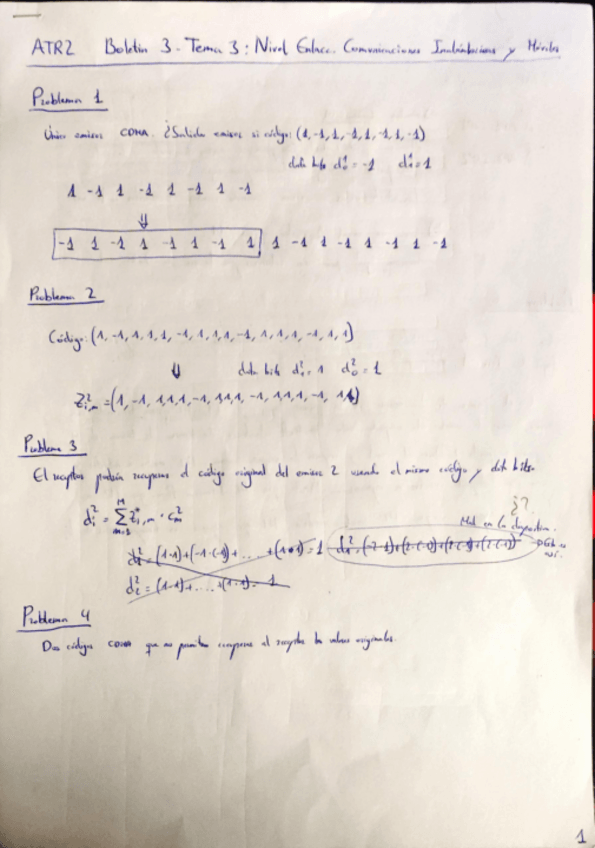 ATR2 Boletín 3 - Tema 3: Nivel Enlace. Comunicaciones Inalámbricas y Móviles
Problema 1
Único emisor CDMA. ¿Salida emisor si código: (1,-1,1,-1,1,-1,1,-1)
data bits d₀¹ = -1 d₁¹ = 1
1 -1 1 -1 1 -1 1 -1
⇓
-1 1 -1 1 -1 1 -1 1 1 -1 1 -1 1 -1 1 -1
Problema 2
Código: (1, -1, 1, 1, 1, -1, 1, 1, 1, -1, 1, 1, 1, -1, 1, 1)
⇓ data bits d₁² = 1 d₀² = 1
Z²i,m = (1, -1, 1,1,1, -1, 1,1,1, -1, 1,1,1, -1, 1,1)
Problema 3
El receptor podría recuperar el código original del emisor 2 usando el mismo código y data bits.
¿?
dᵢ² = Σ Z*i,m · cm²
M
m=1
Mal en la diapositiva.
= (1·1)+(-1·(-1))+ . . . +(1·1) = 1
d₂² = (1·1)+ . . . +(1·1) = 1
Problema 4
Dos códigos CDMA que no permitan recuperar al receptor los valores originales.
1